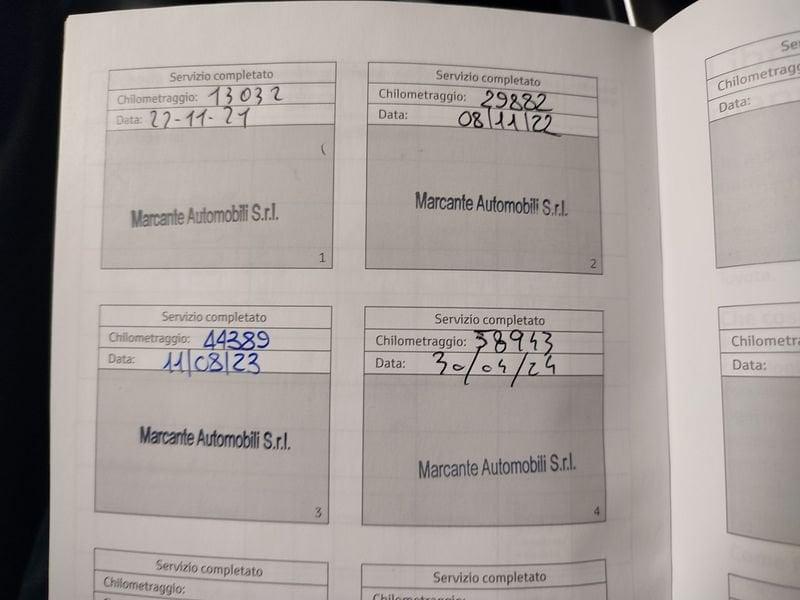 Servizio completato
Chilometraggio: 13032
Data: 22-11-21
Marcante Automobili S.r.l.
1
Servizio completato
Chilometraggio: 29882
Data: 08/11/22
Marcante Automobili S.r.l.
2
Servizio completato
Chilometraggio: 44389
Data: 11/08/23
Marcante Automobili S.r.l.
3
Servizio completato
Chilometraggio: 58943
Data: 30/04/24
Marcante Automobili S.r.l.
4
Servizio completato
Chilometraggio:
Servizio completato
Data:
Data: